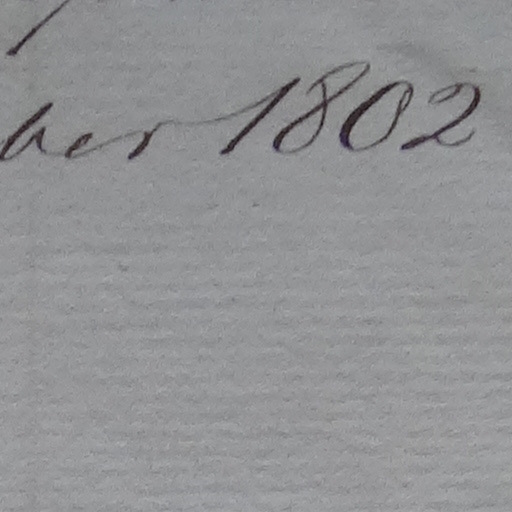 ber 1802